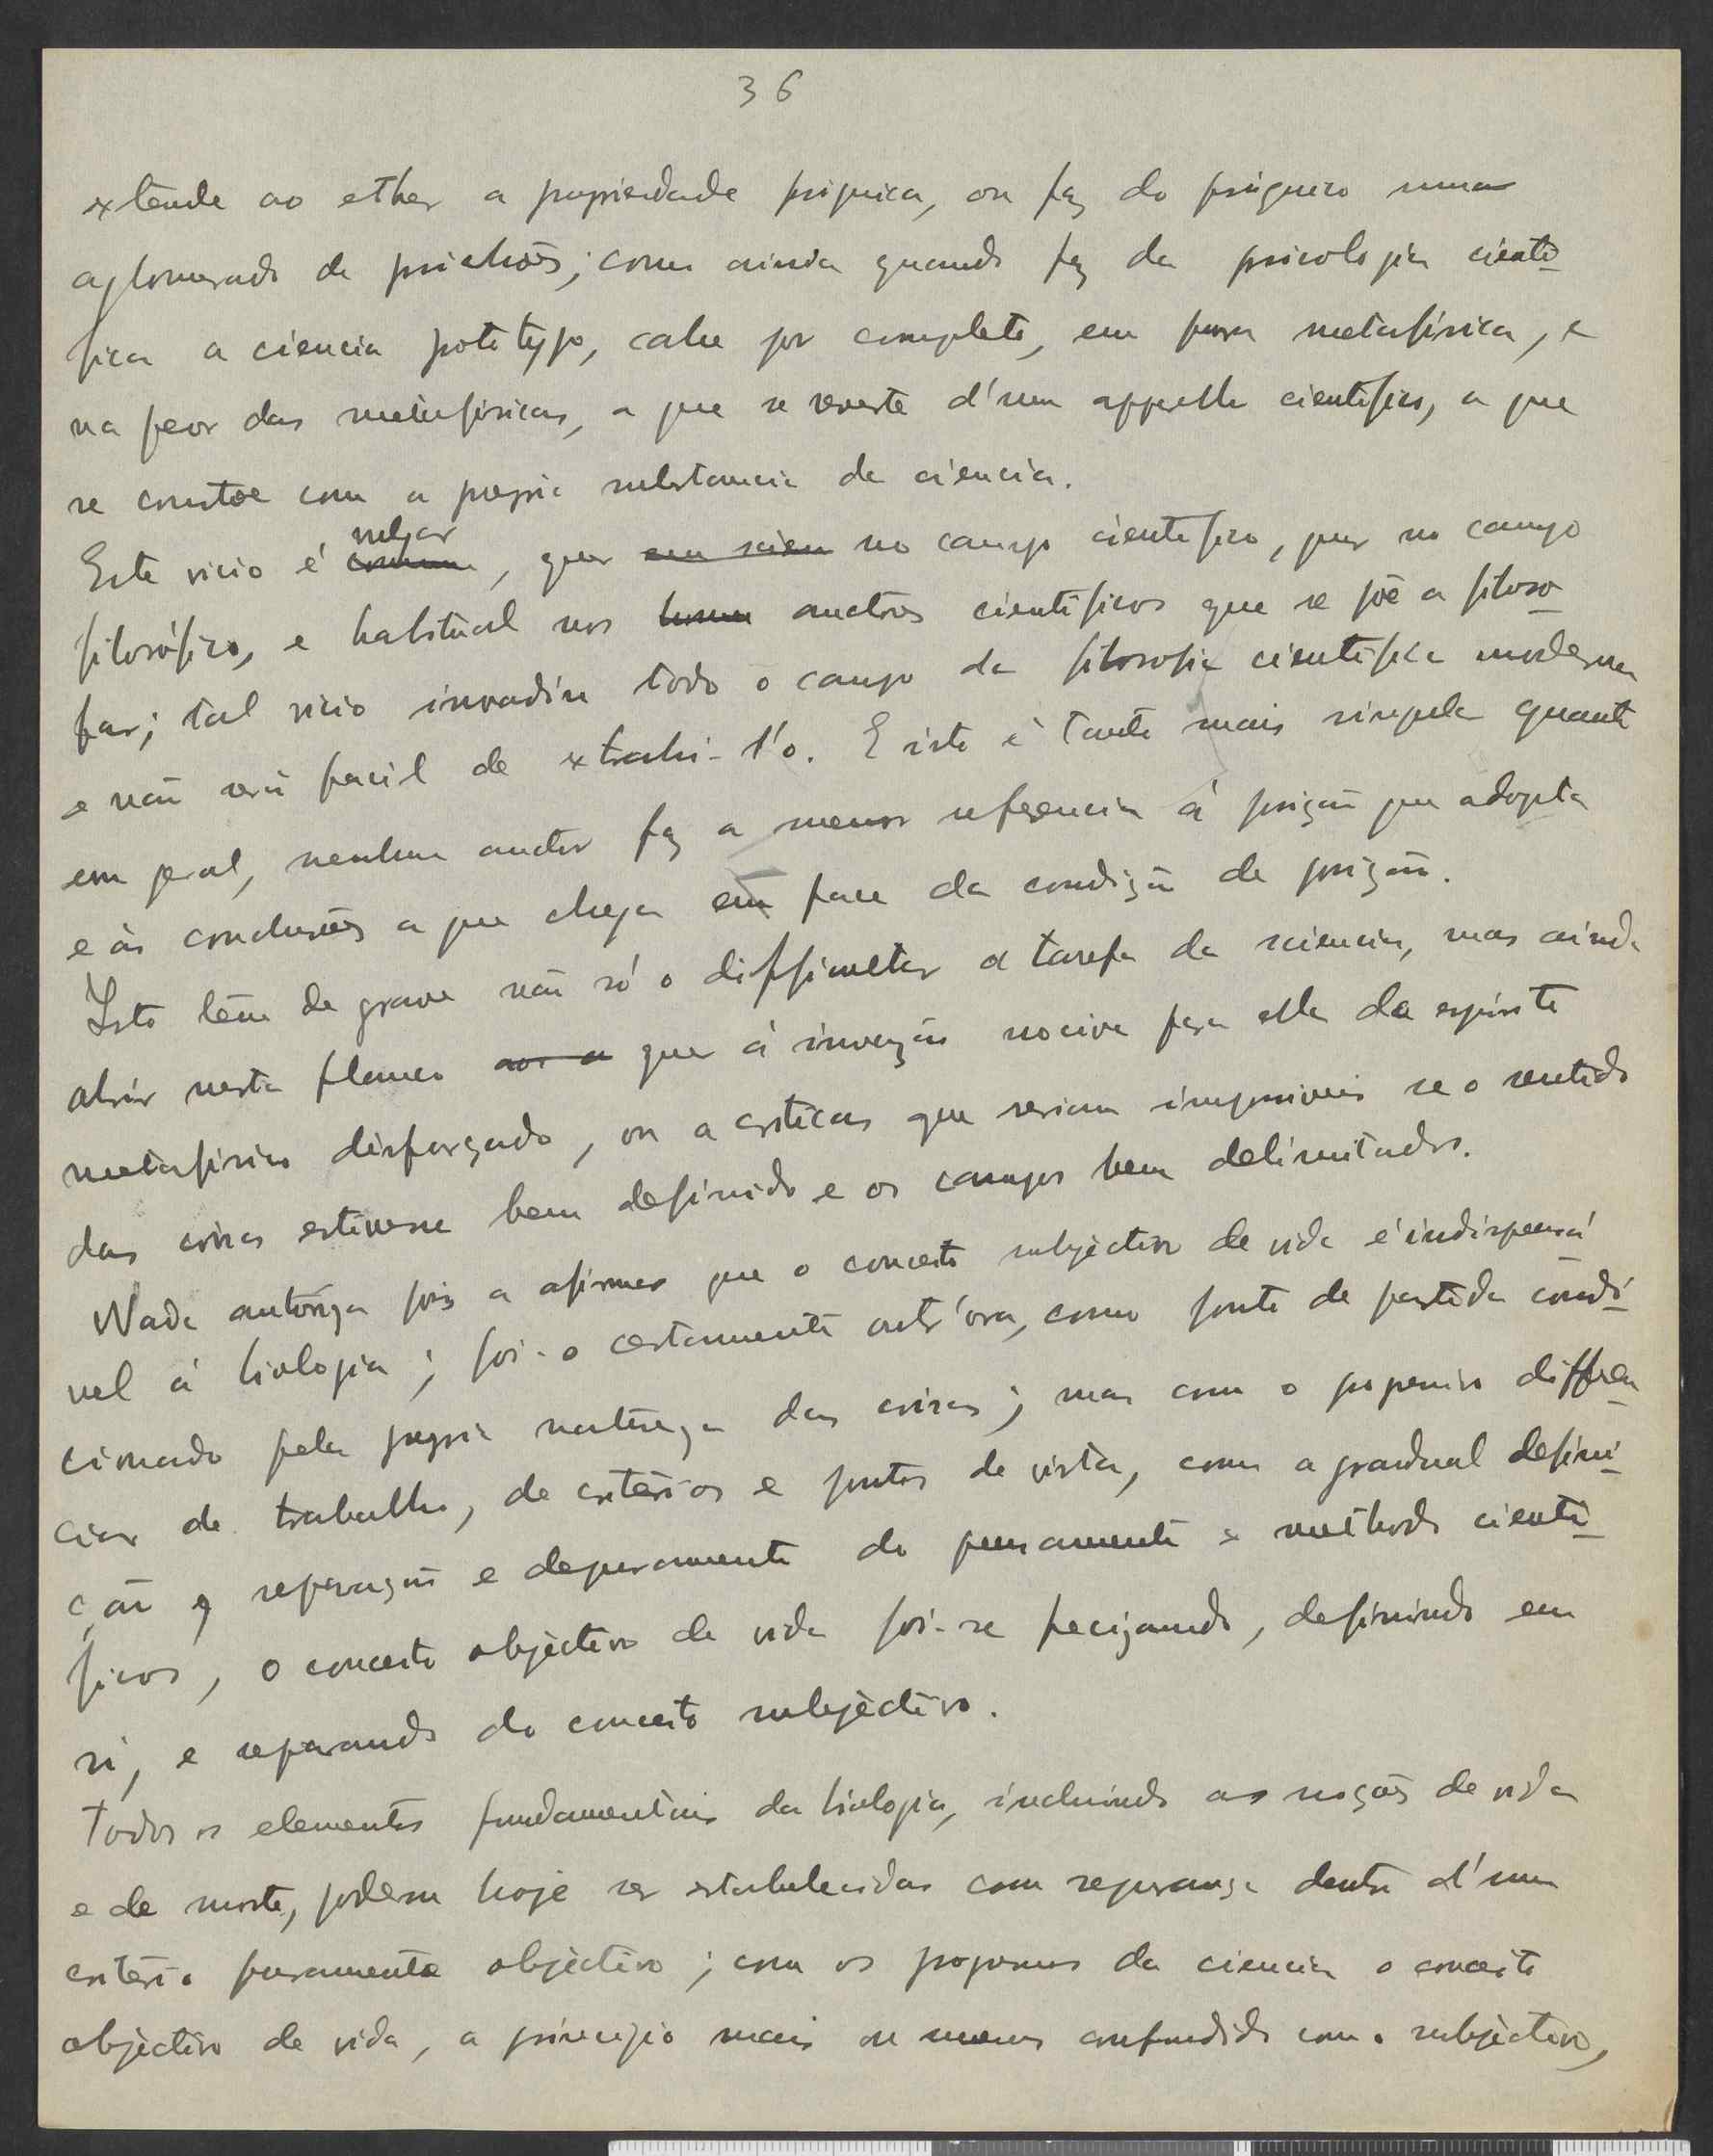 36
extende ao ether a propriedade psiquica, ou faz do psiquico um
aglomerado de psichões; como ainda quando faz da psicologia cienti-
fica a ciencia prototypo, cahe por completo, em pura metafísica, e
na peor das metafisicas, a que se reveste d'um apparelho cientifico, a que
se constroe com a propria substancia da ciencia.
Este vicio é commum vulgar, quer em scien no campo cientifico, quer no campo
filosófico, e habitual nos auctores cientificos que se põe a filoso-
far; tal vicio invadiu todo o campo da filosofia cientifica moderna
e não será facil de extrahi-l'o. E isto é tanto mais singular quanto
em geral, nenhum auctor faz a menor referencia á posição que adopta
e ás conclusões a que chega em face da condição de posição.
Isto tem de grave não só o difficultar a tarefa da sciencia, mas ainda
abrir nesta flanco quer á invenção nociva para ella do espirito
metafisico disfarçado, ou a criticas que seriam impossiveis se o sentido
das coisas estivesse bem definido e os campos bem delimitados.
Nada autoriza pois a afirmar que o conceito subjectivo de vida é indispensá-
vel á biologia; foi-o certamente outr'ora, como ponto de partida condi-
cionado pela propria natureza das coisas; mas com o progressivo differen-
ciar de trabalho, de critérios e pontos de vista, com a gradual defini-
ção e separação e depuramento do pensamento e methodo cienti-
ficos, o conceito objectivo de vida foi-se precizando, definindo em
si, e separando do conceito subjectivo.
Todos os elementos fundamentais da biologia, incluindo as noções de vida
e de morte, podem hoje ser estabelecidas com segurança dentro d'um
critério puramente objectivo; com os progressos da ciencia o conceito
objectivo de vida, a principio mais ou menos confundido com o subjectivo,